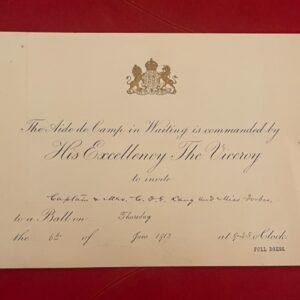 The Aide de Camp in Waiting is commanded by
His Excellency The Viceroy
to invite
Captain & Mrs. and Miss
to a Ball on Thursday
the 6th of June 1912 at o'Clock.
FULL DRESS.